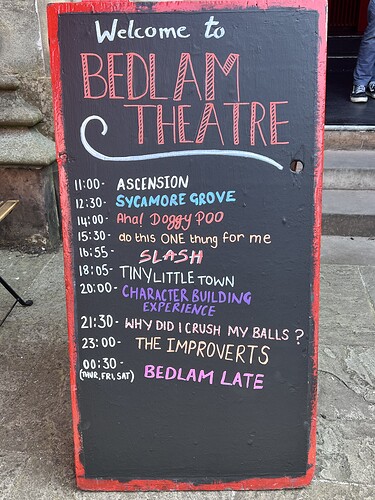 Welcome to
BEDLAM
THEATRE
11:00- ASCENSION
12:30- SYCAMORE GROVE
14:00- Aha! Doggy Poo
15:30- do this ONE thing for me
16:55- SLASH
18:05- TINY LITTLE TOWN
20:00- CHARACTER BUILDING
EXPERIENCE
21:30- WHY DID I CRUSH MY BALLS ?
23:00- THE IMPROVERTS
00:30- BEDLAM LATE
(THUR, FRI, SAT)